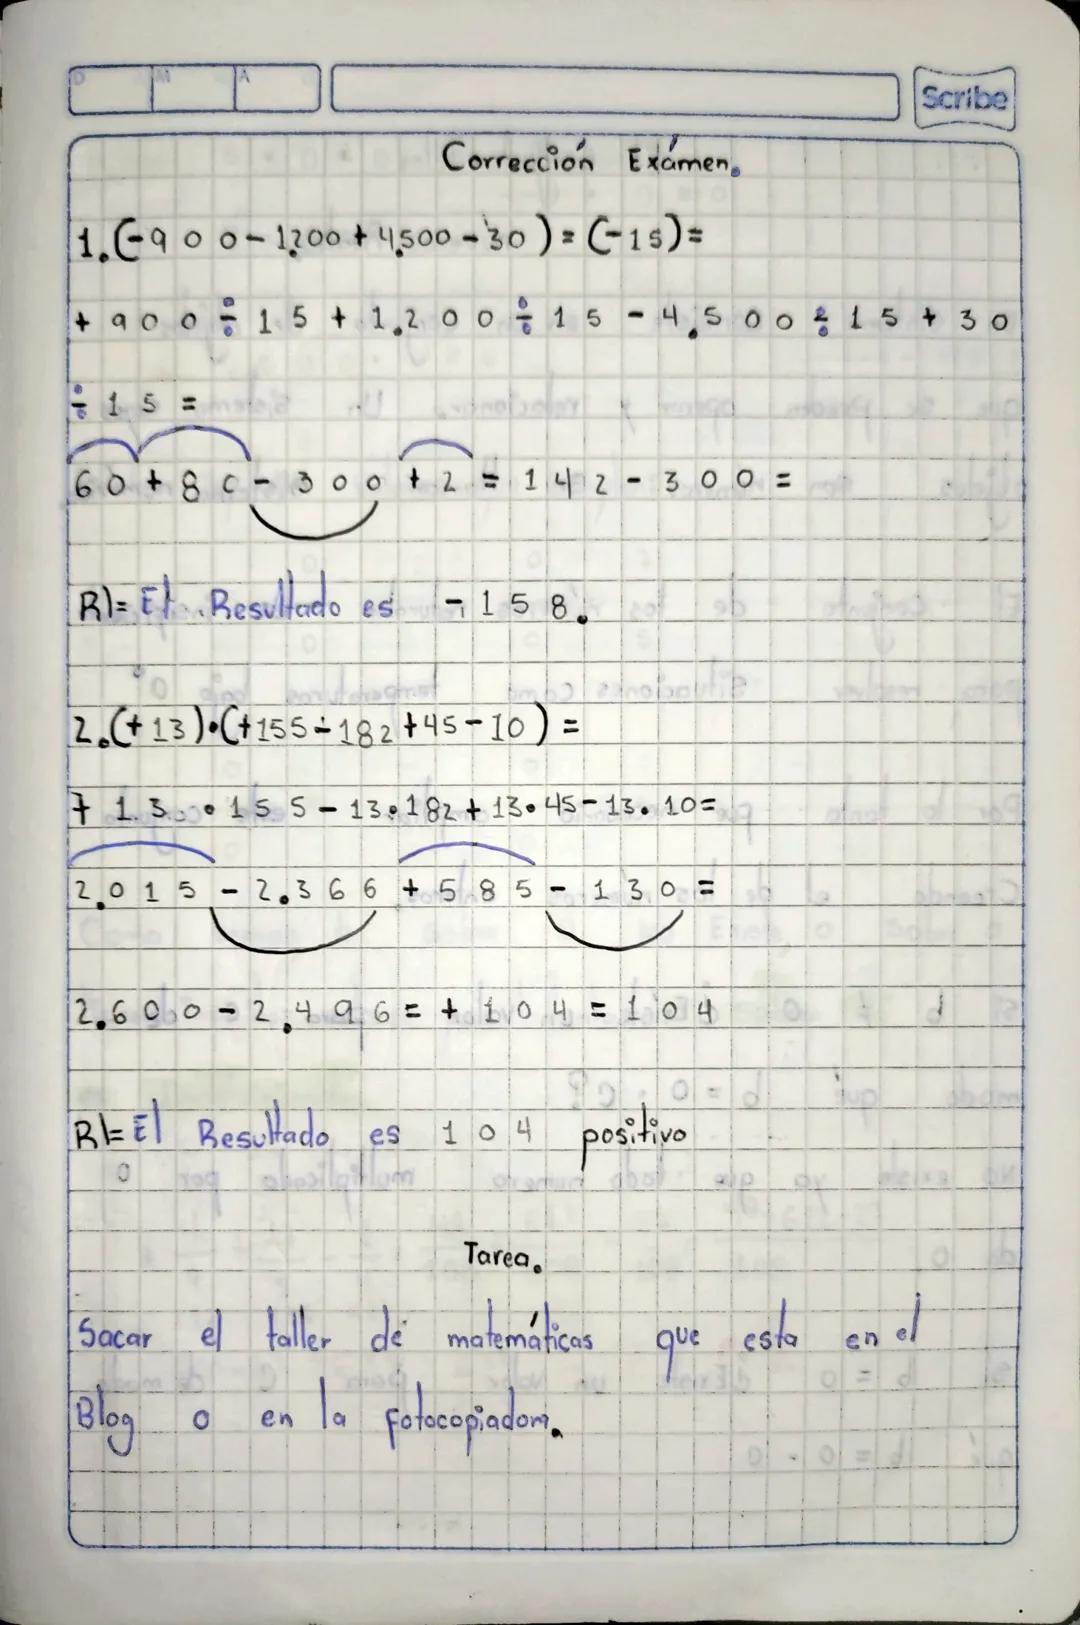 D M A
Scribe
Corrección Exámen.
1.(-900-1,200+4,500-30)=(-15)=
+900÷15+1,200÷15-4,500÷15+30
÷15=
60+80-300+2=142-300=
R|= El Resultado es -158.
2.(+13)•(+155-182+45-10)=
+13•155-13•182+13•45-13.10=
2,015-2.366+585-130=
2.600-2,496=+104=104
R|= El Resultado es 104 positivo
Tarea.
Sacar el taller de matemáticas que esta en el
Blog o en la fotocopiadora.